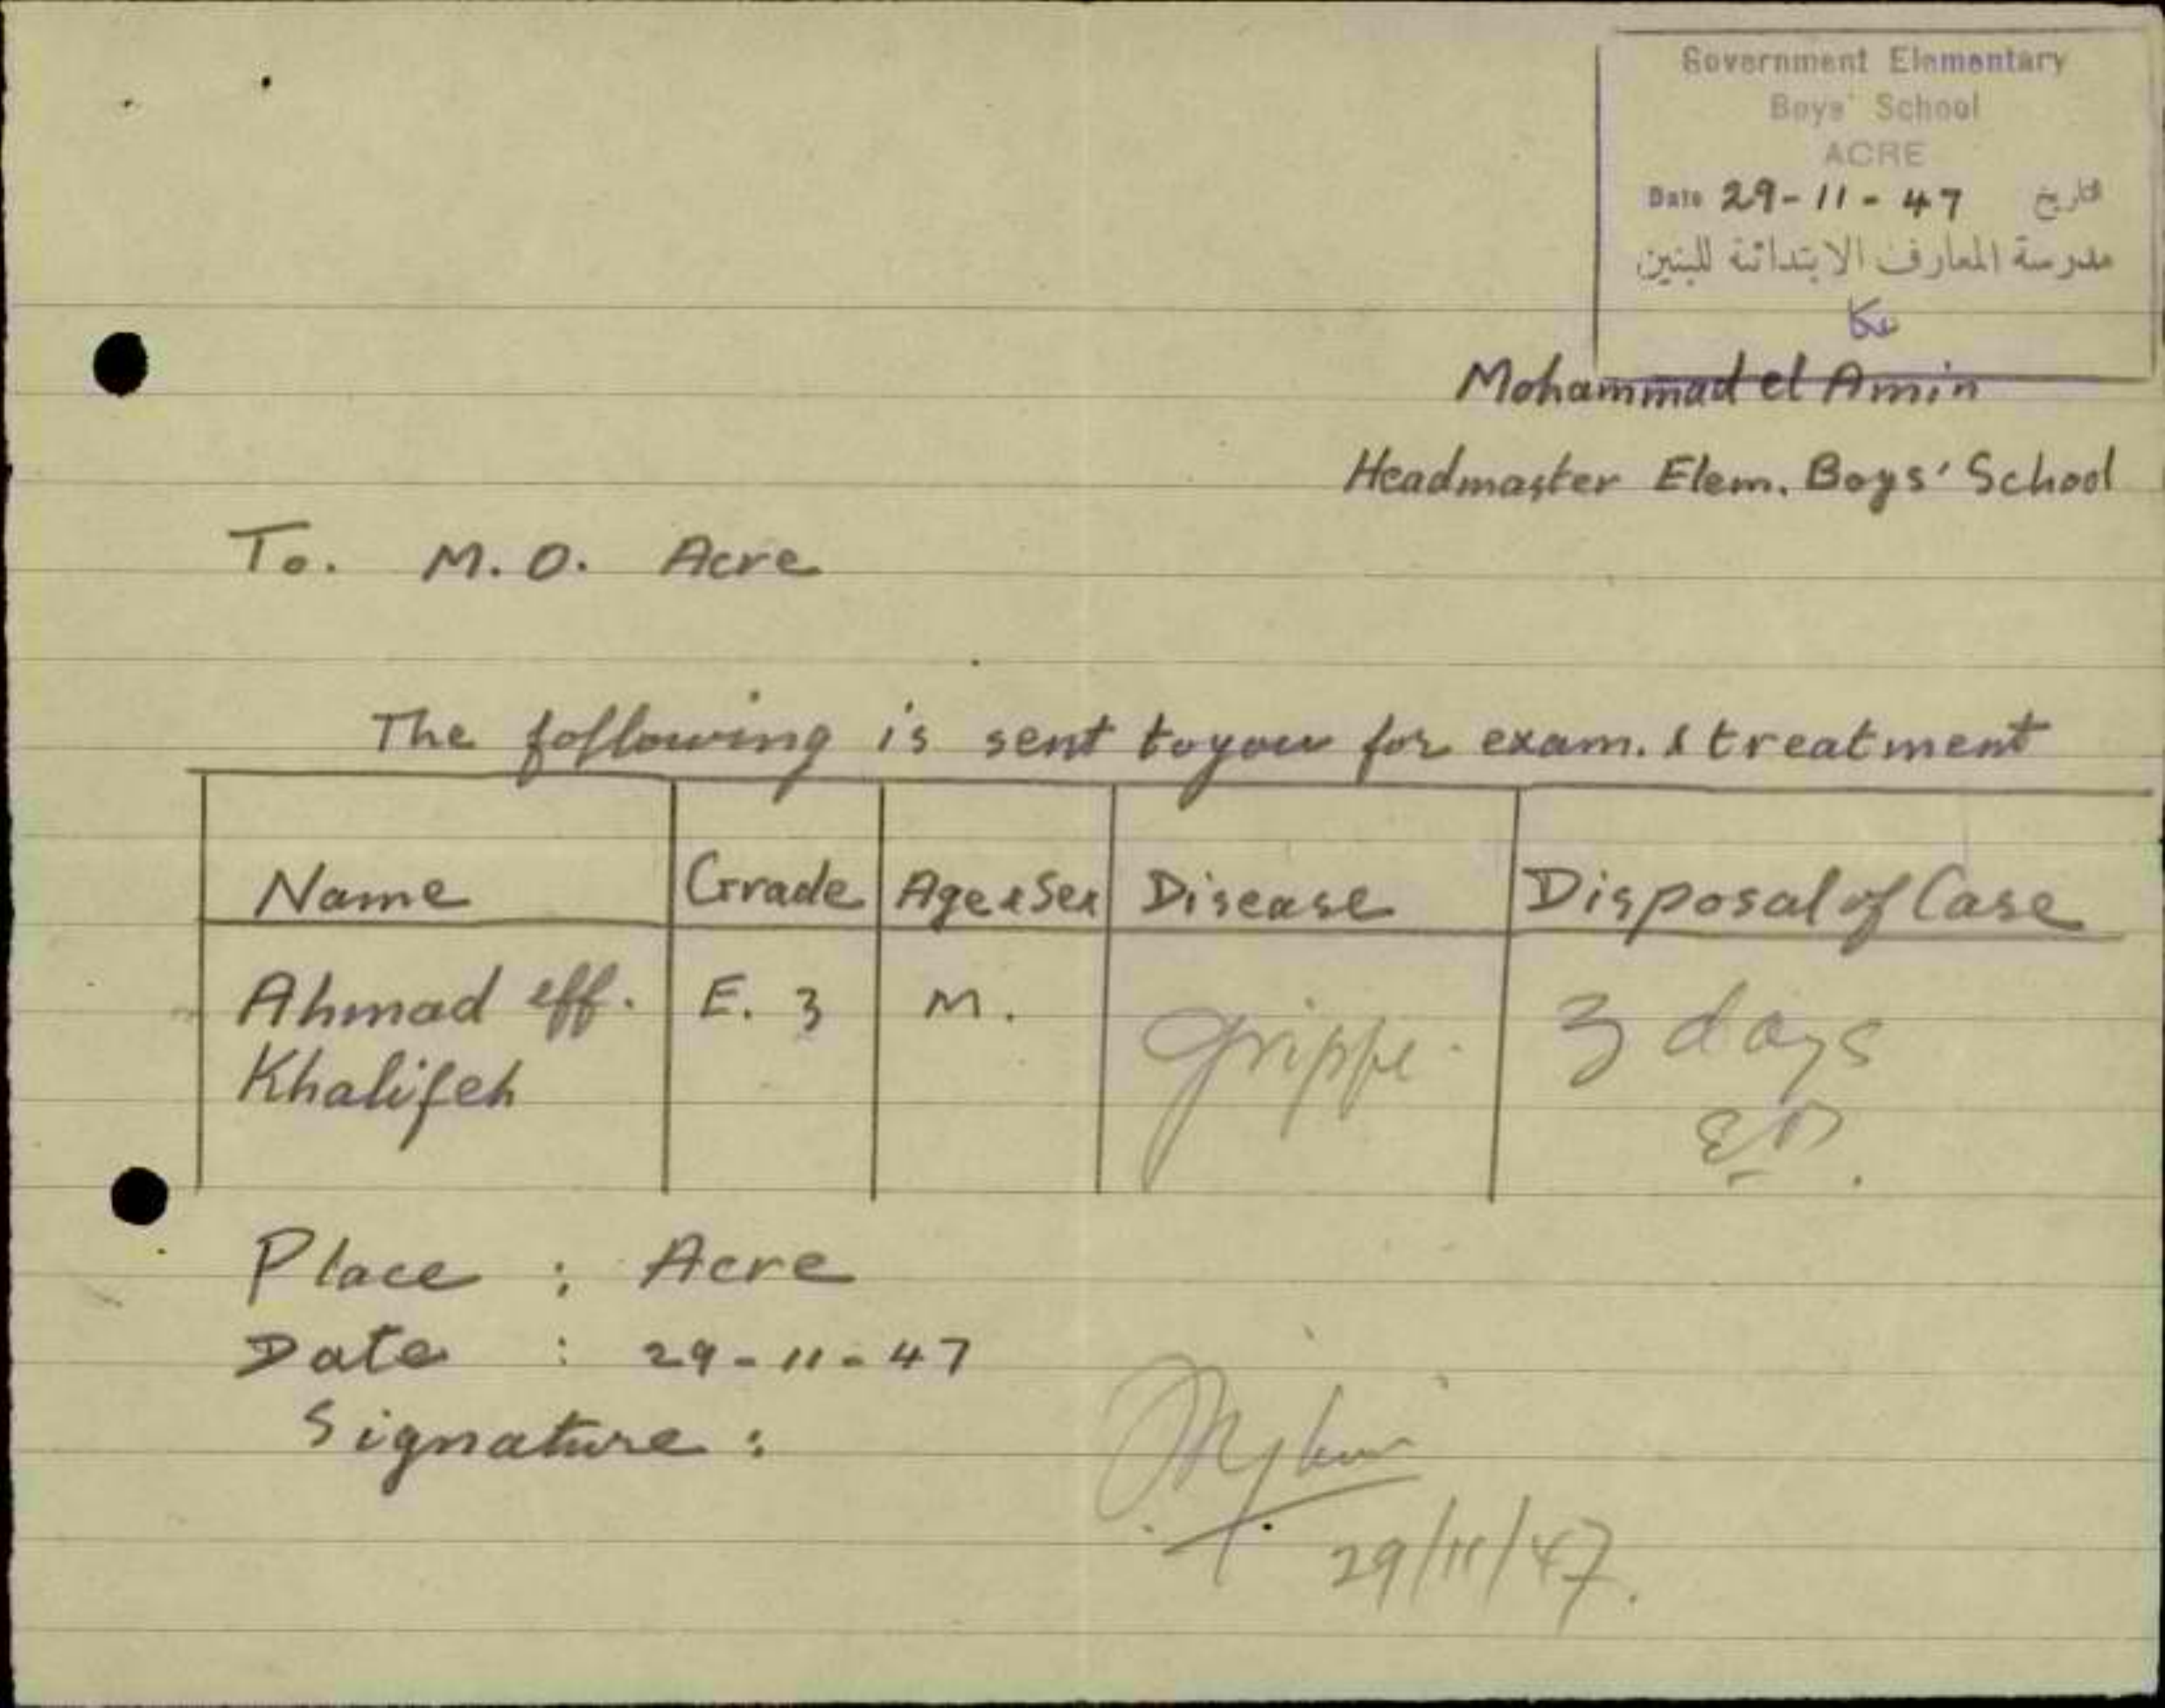 Government Elementary
Boys' School
ACRE
Date 29-11-47 التاريخ
مدرسة المعارف الابتدائية للبنين
عكا
Mohammad el Amin
Headmaster Elem. Boys' School
To. M.O. Acre
The following is sent to you for exam. & treatment
Name Grade Age & Sex Disease Disposal of Case
Ahmad eff. E. 3 M. grippe. 3 days
Khalifeh
Place : Acre
Date : 29-11-47
Signature :
29/11/47.